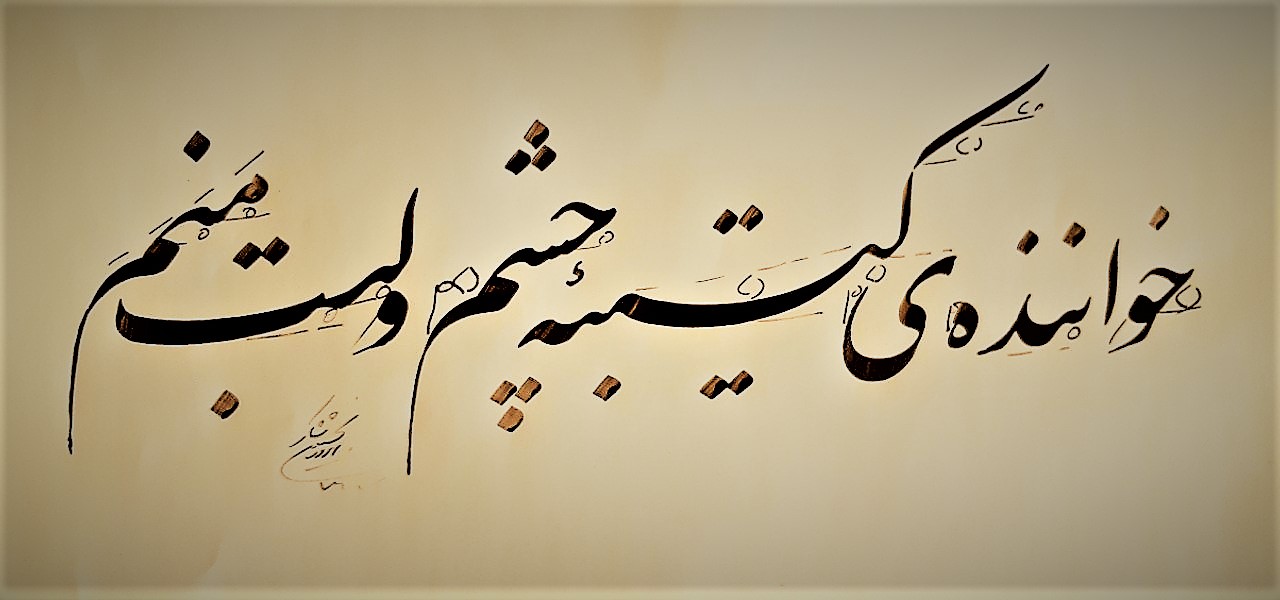 خواننده‌ی کتیبهٔ چشم و لبت منم